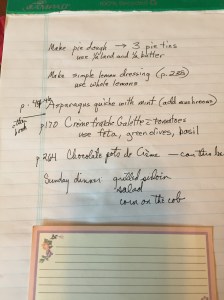 Make pie dough → 3 pie tins
use ½ lard and ½ butter
Make simple lemon dressing (p. 255)
use whole lemons
p. Asparagus quiche with mint (add mushrooms)
p170 Crème fraîche Galette = tomatoes
use feta, green olives, basil
p 264 Chocolate pots de Crème — can this be
Sunday dinner grilled sirloin
salad
corn on the cob